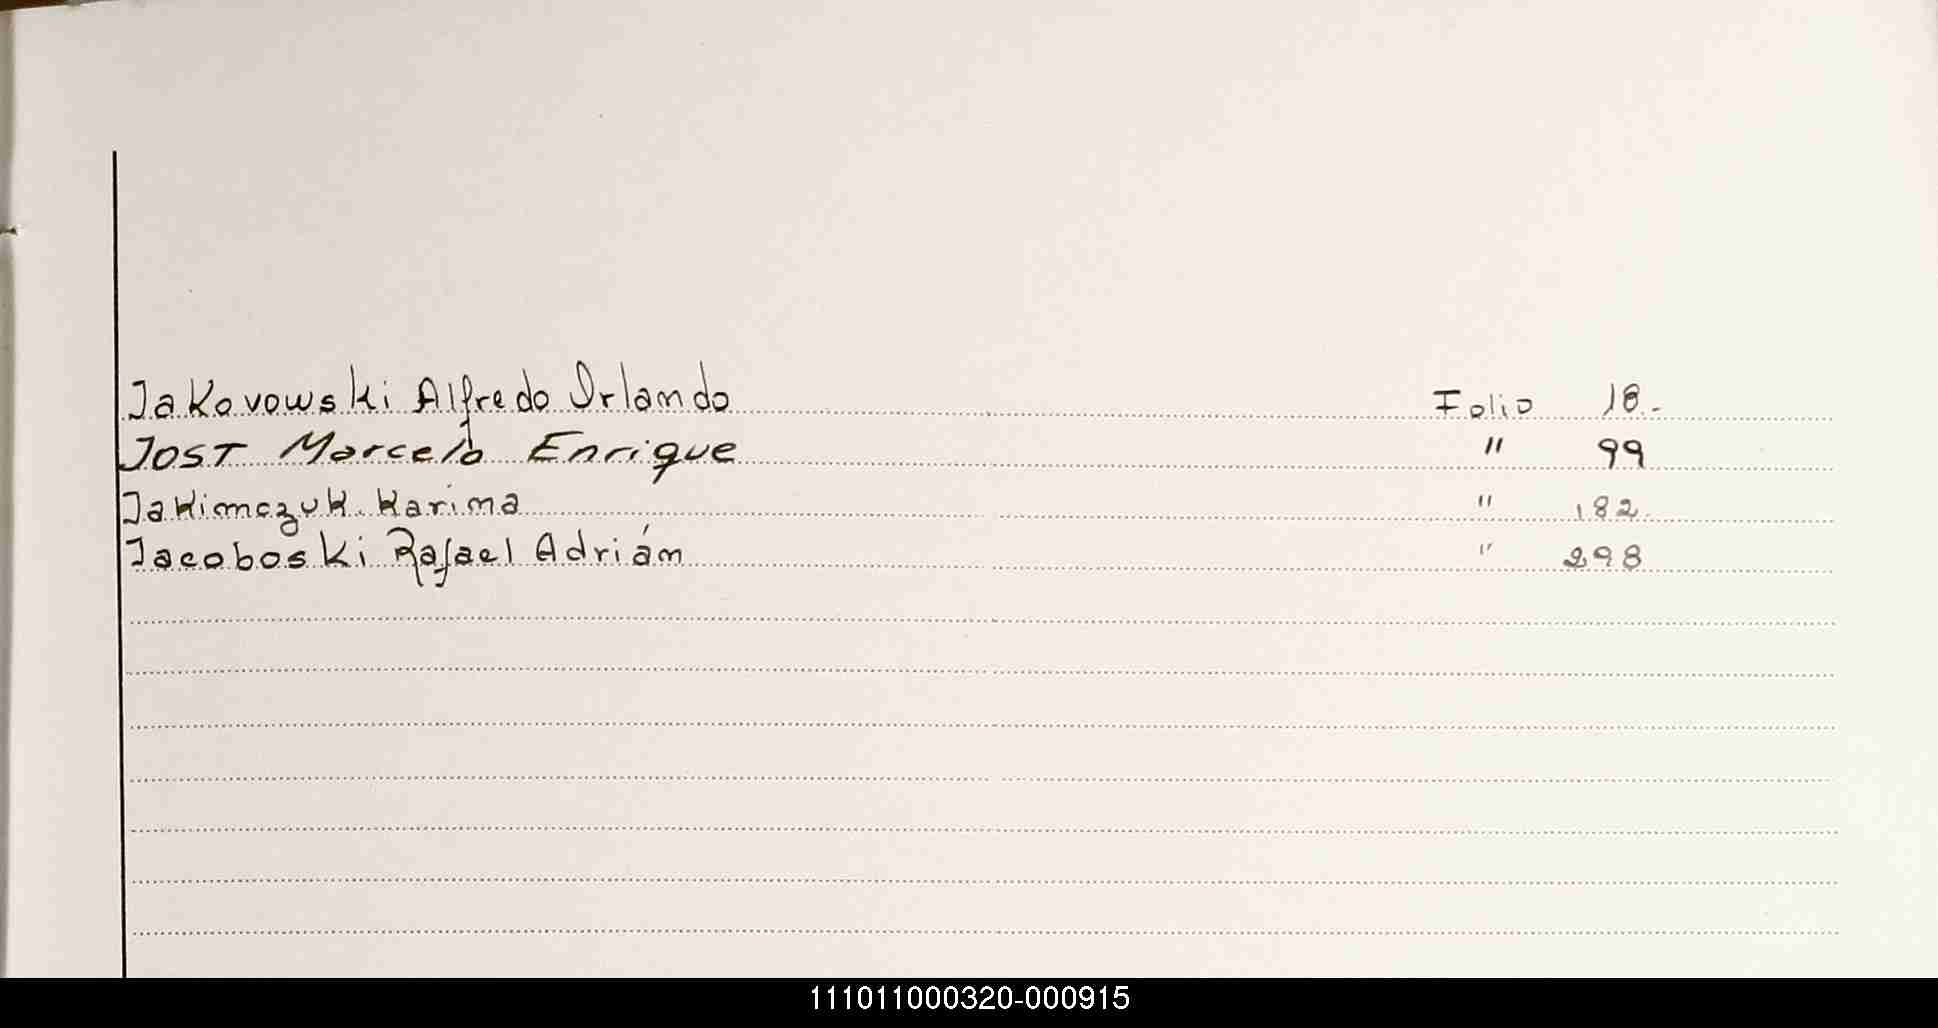 Jakovowski Alfredo Orlando Folio 18.-
JOST Marcelo Enrique " 99
Jakimczuk Karima " 182.
Jacoboski Rafael Adrián " 298
111011000320-000915